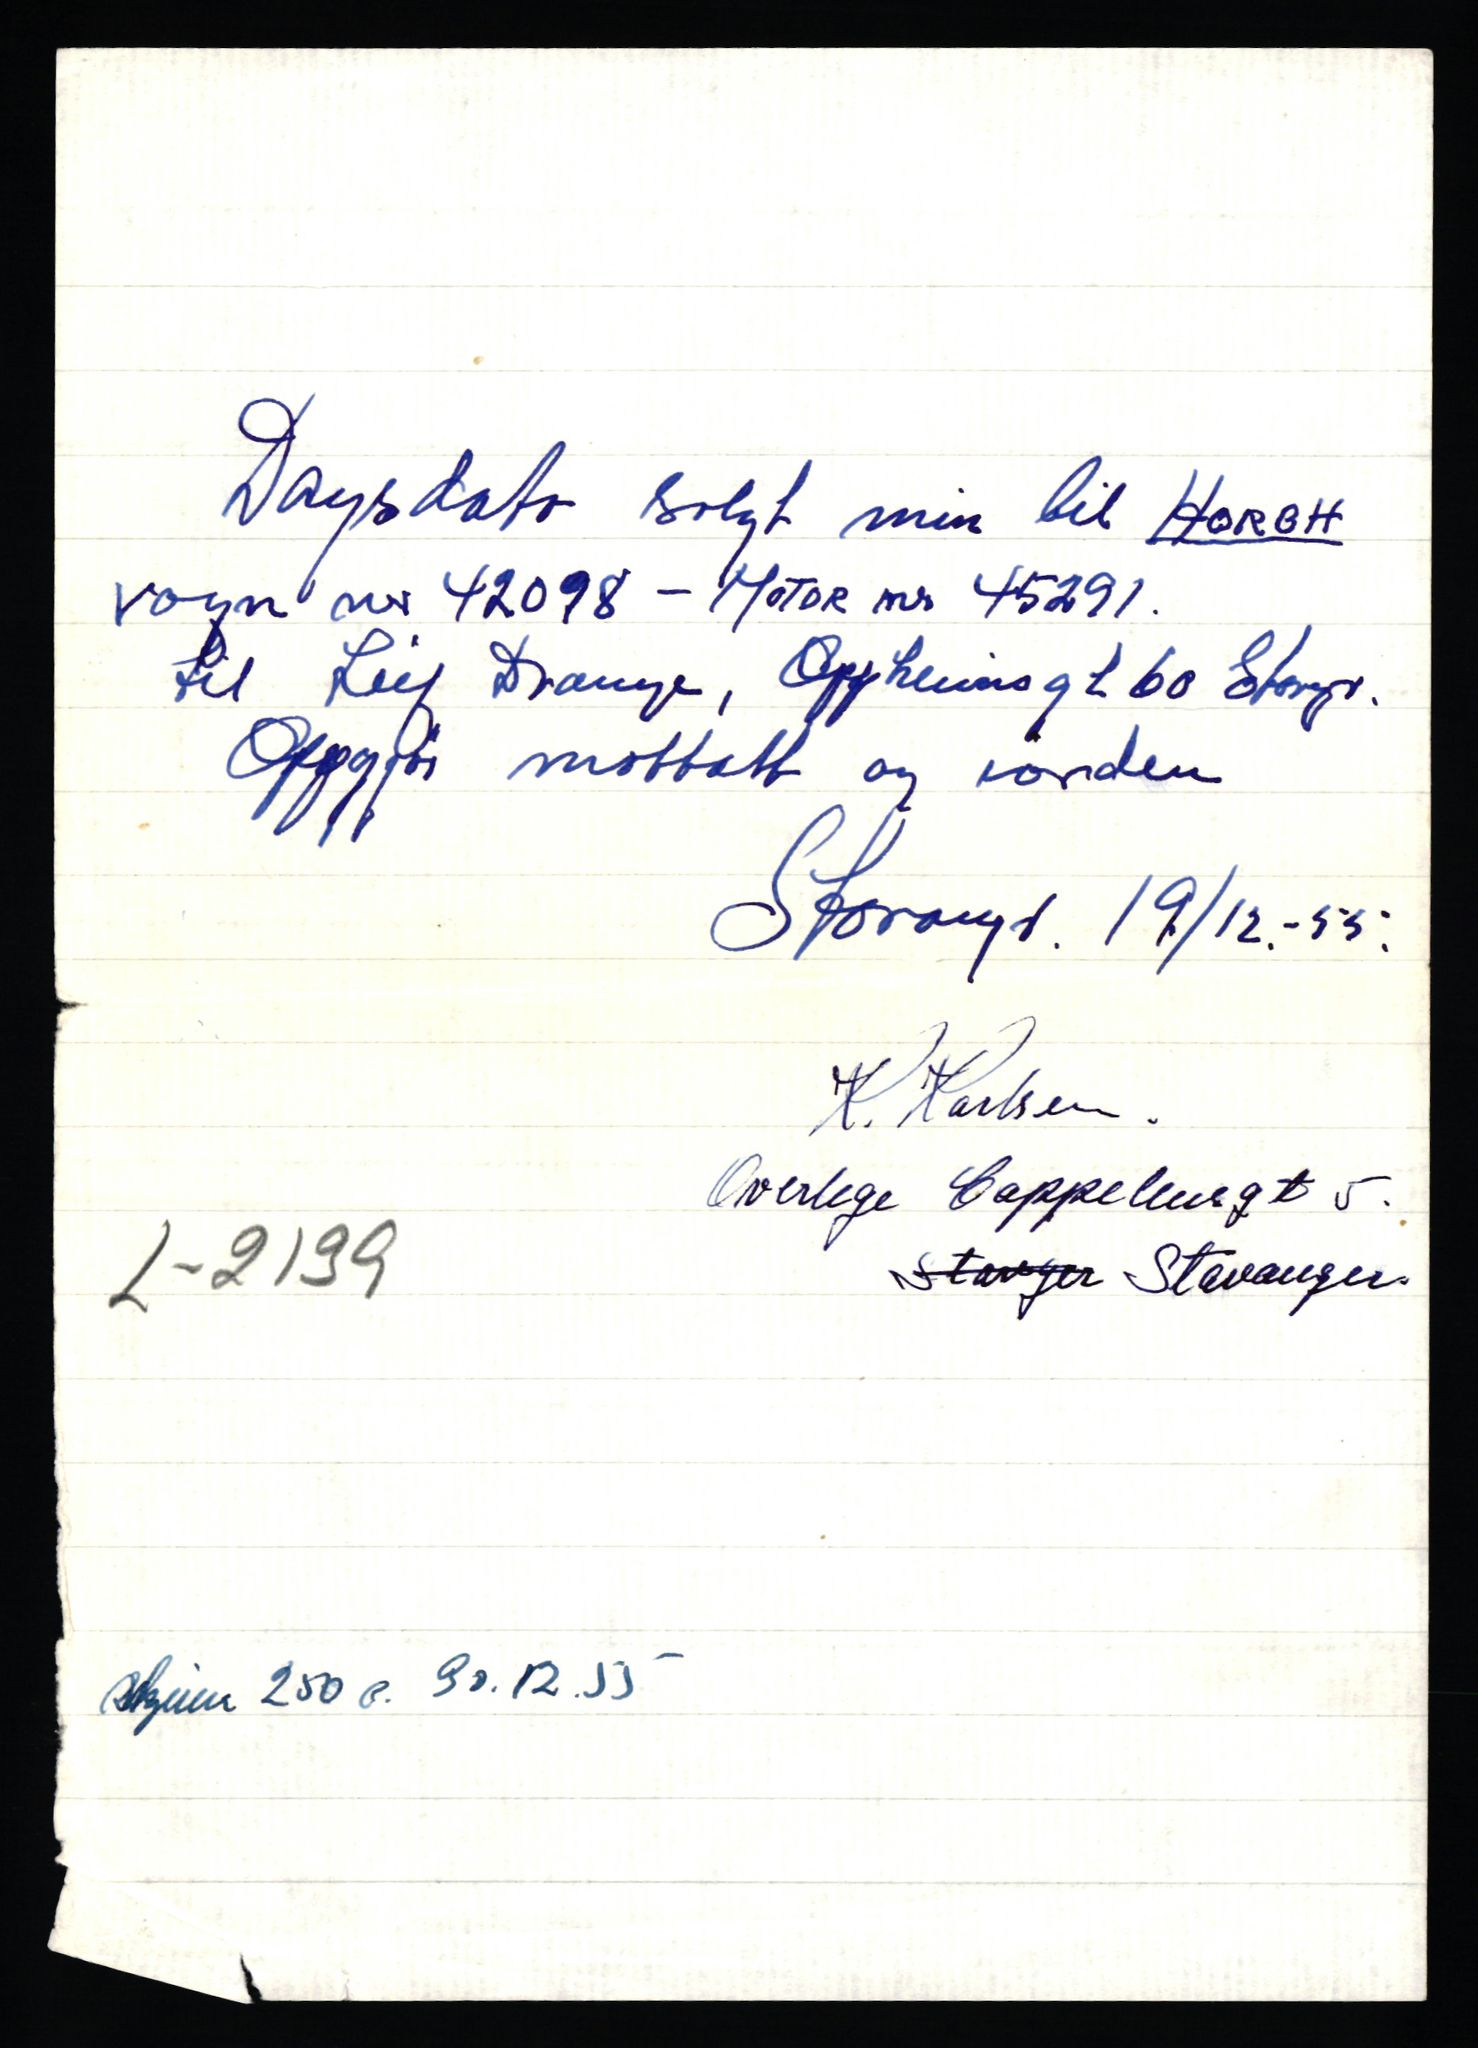 Dagsdato solgt min bil HORCH
vogn nr 42098 - MOTOR nr 45291.
til Leif Drange, Oppheimsgt 60 Stvgr.
Oppgjör mottatt og i orden
Stavangr. 19/12.-55.
K. Karlsen.
Overlege Cappelensgt 5.
Stavger Stavanger.
L-2139
250 30.12.55